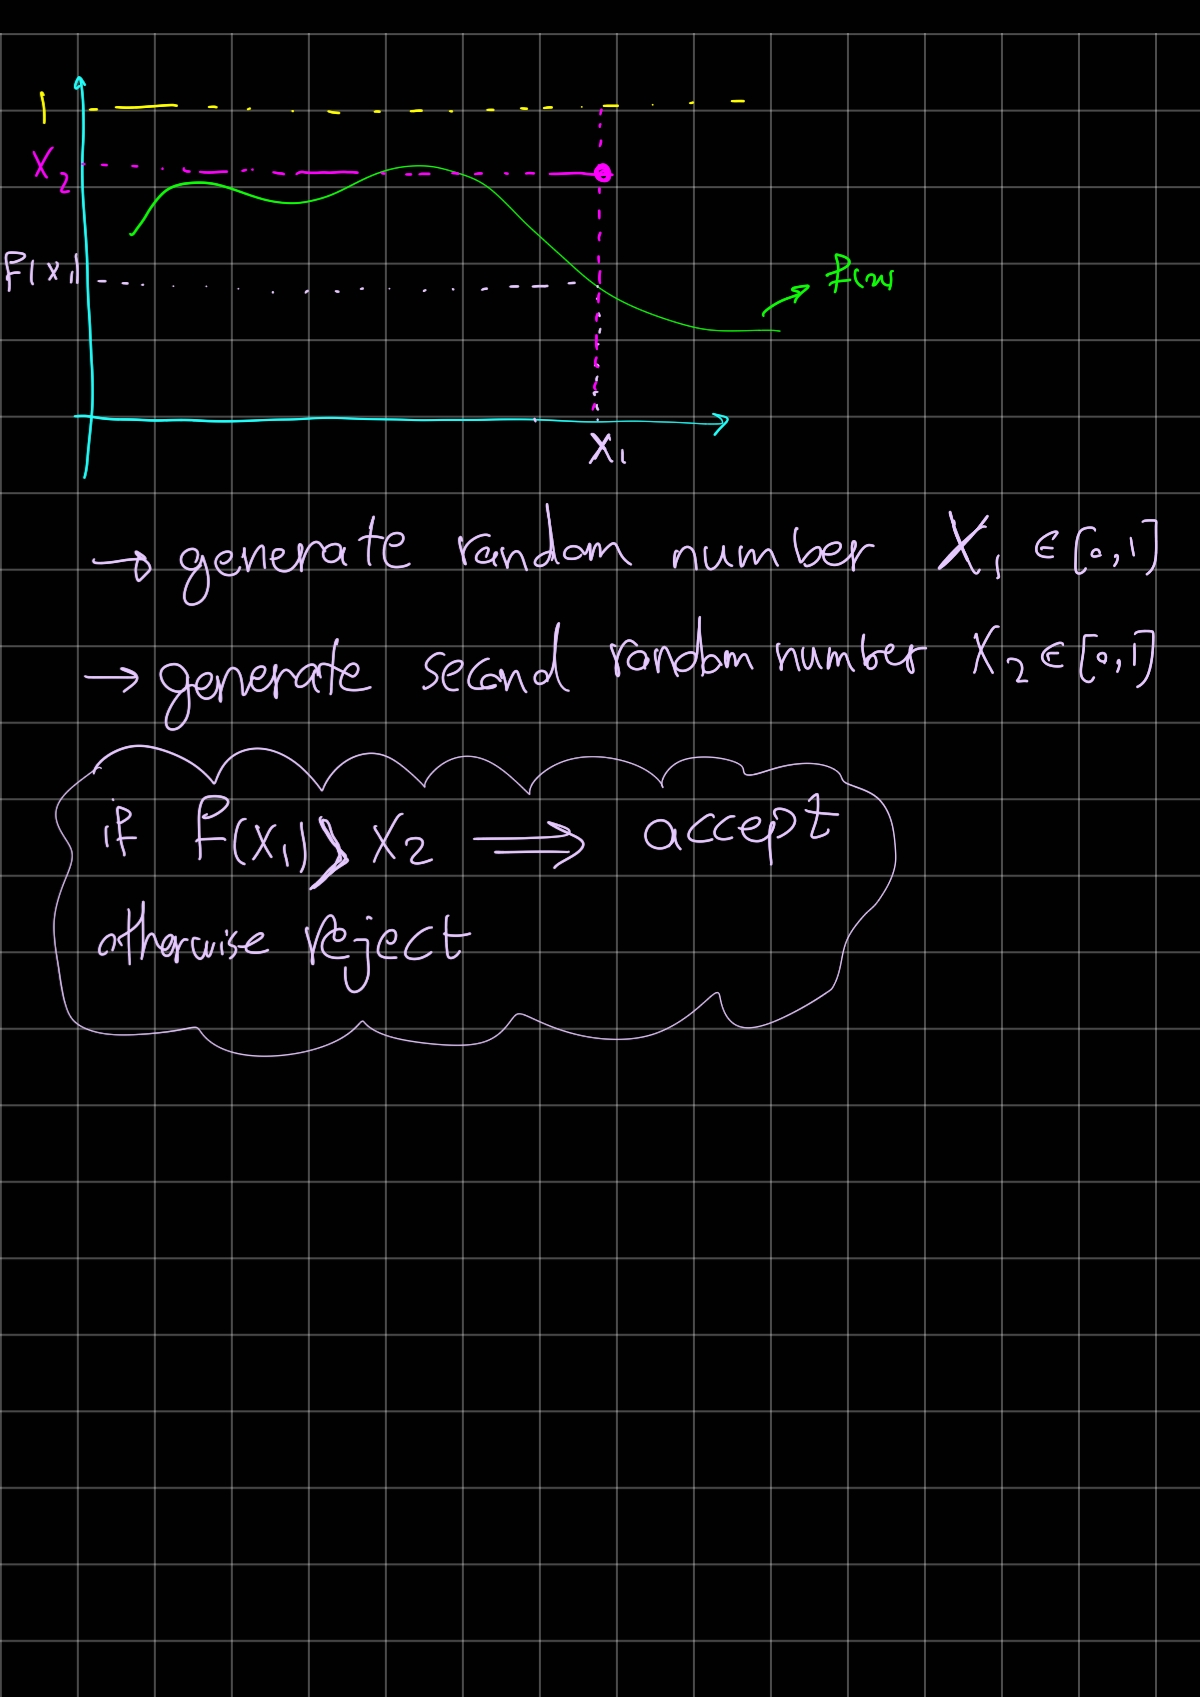 1
X₂
f(x₁)
f(x)
X₁
→ generate random number X₁ ∈ [0,1]
→ generate second random number X₂ ∈ [0,1]
if f(x₁) > X₂ ⟹ accept
otherwise reject